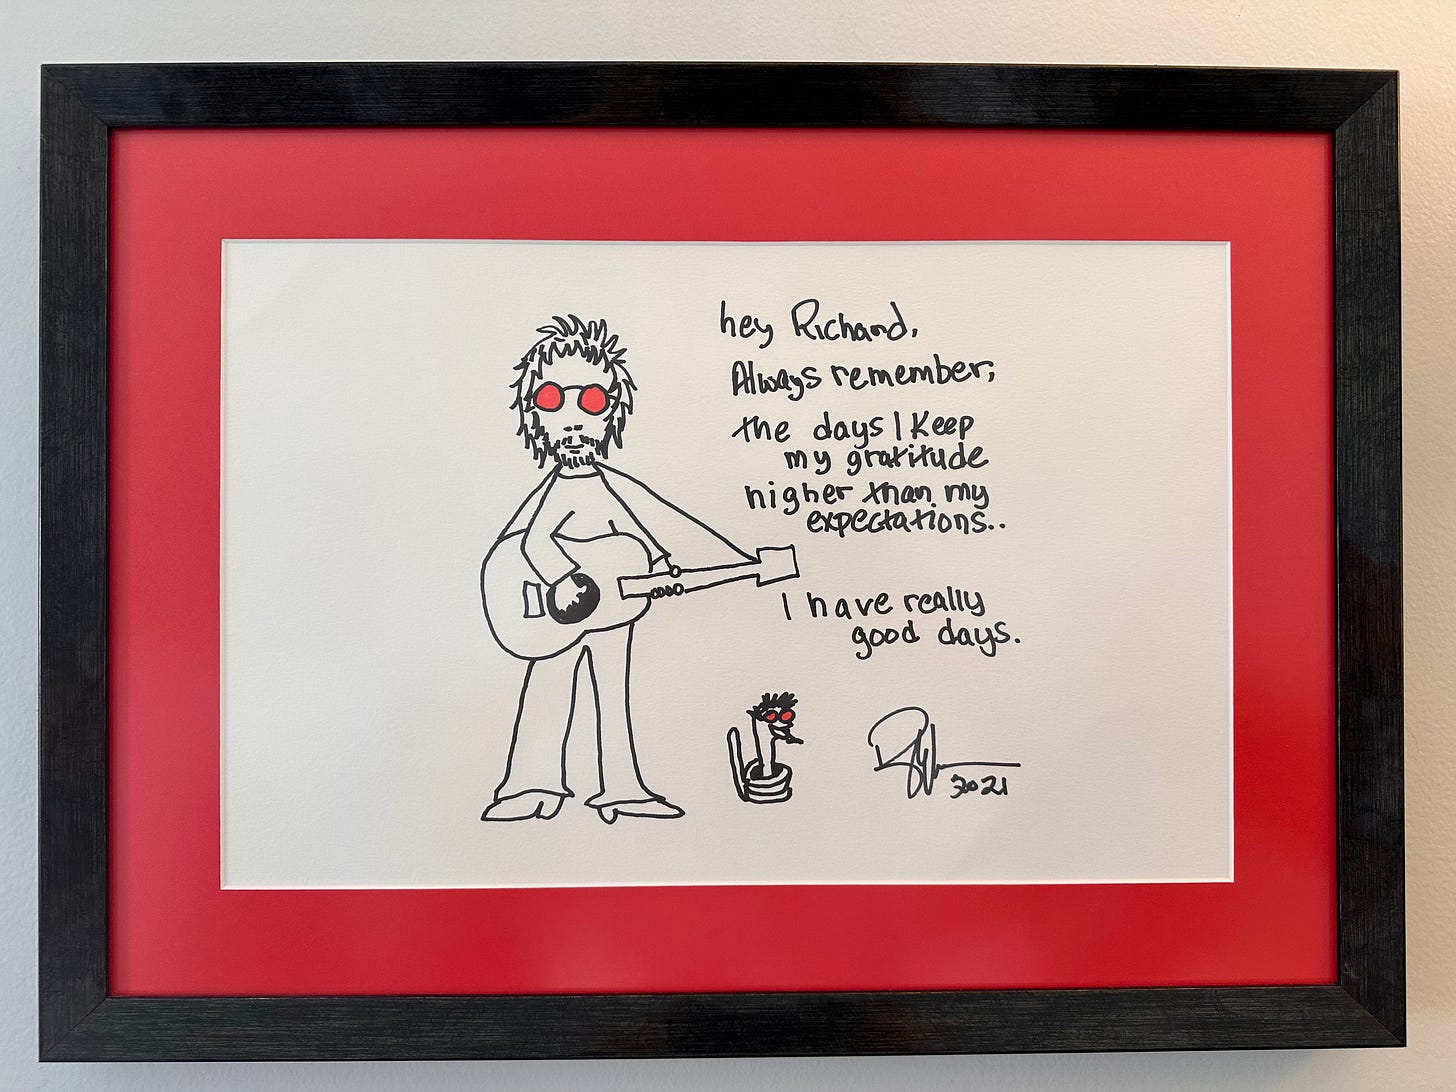 hey Richard,
Always remember;
the days I keep
my gratitude
higher than my
expectations..
I have really
good days.
2021